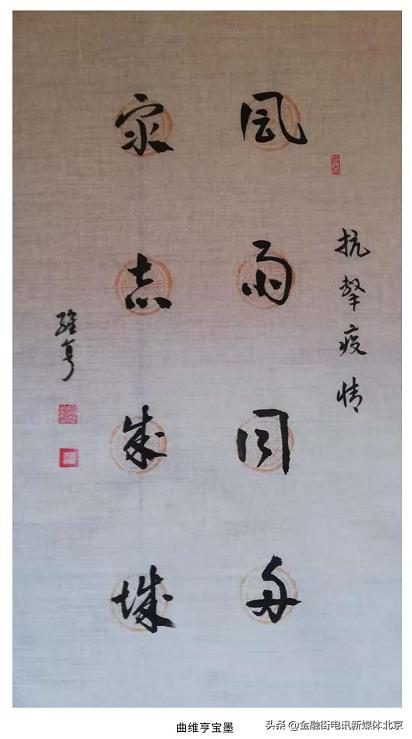 抗擊疫情
風雨同舟
衆志成城
維亨
曲维亨宝墨
头条 @金融街电讯新媒体北京